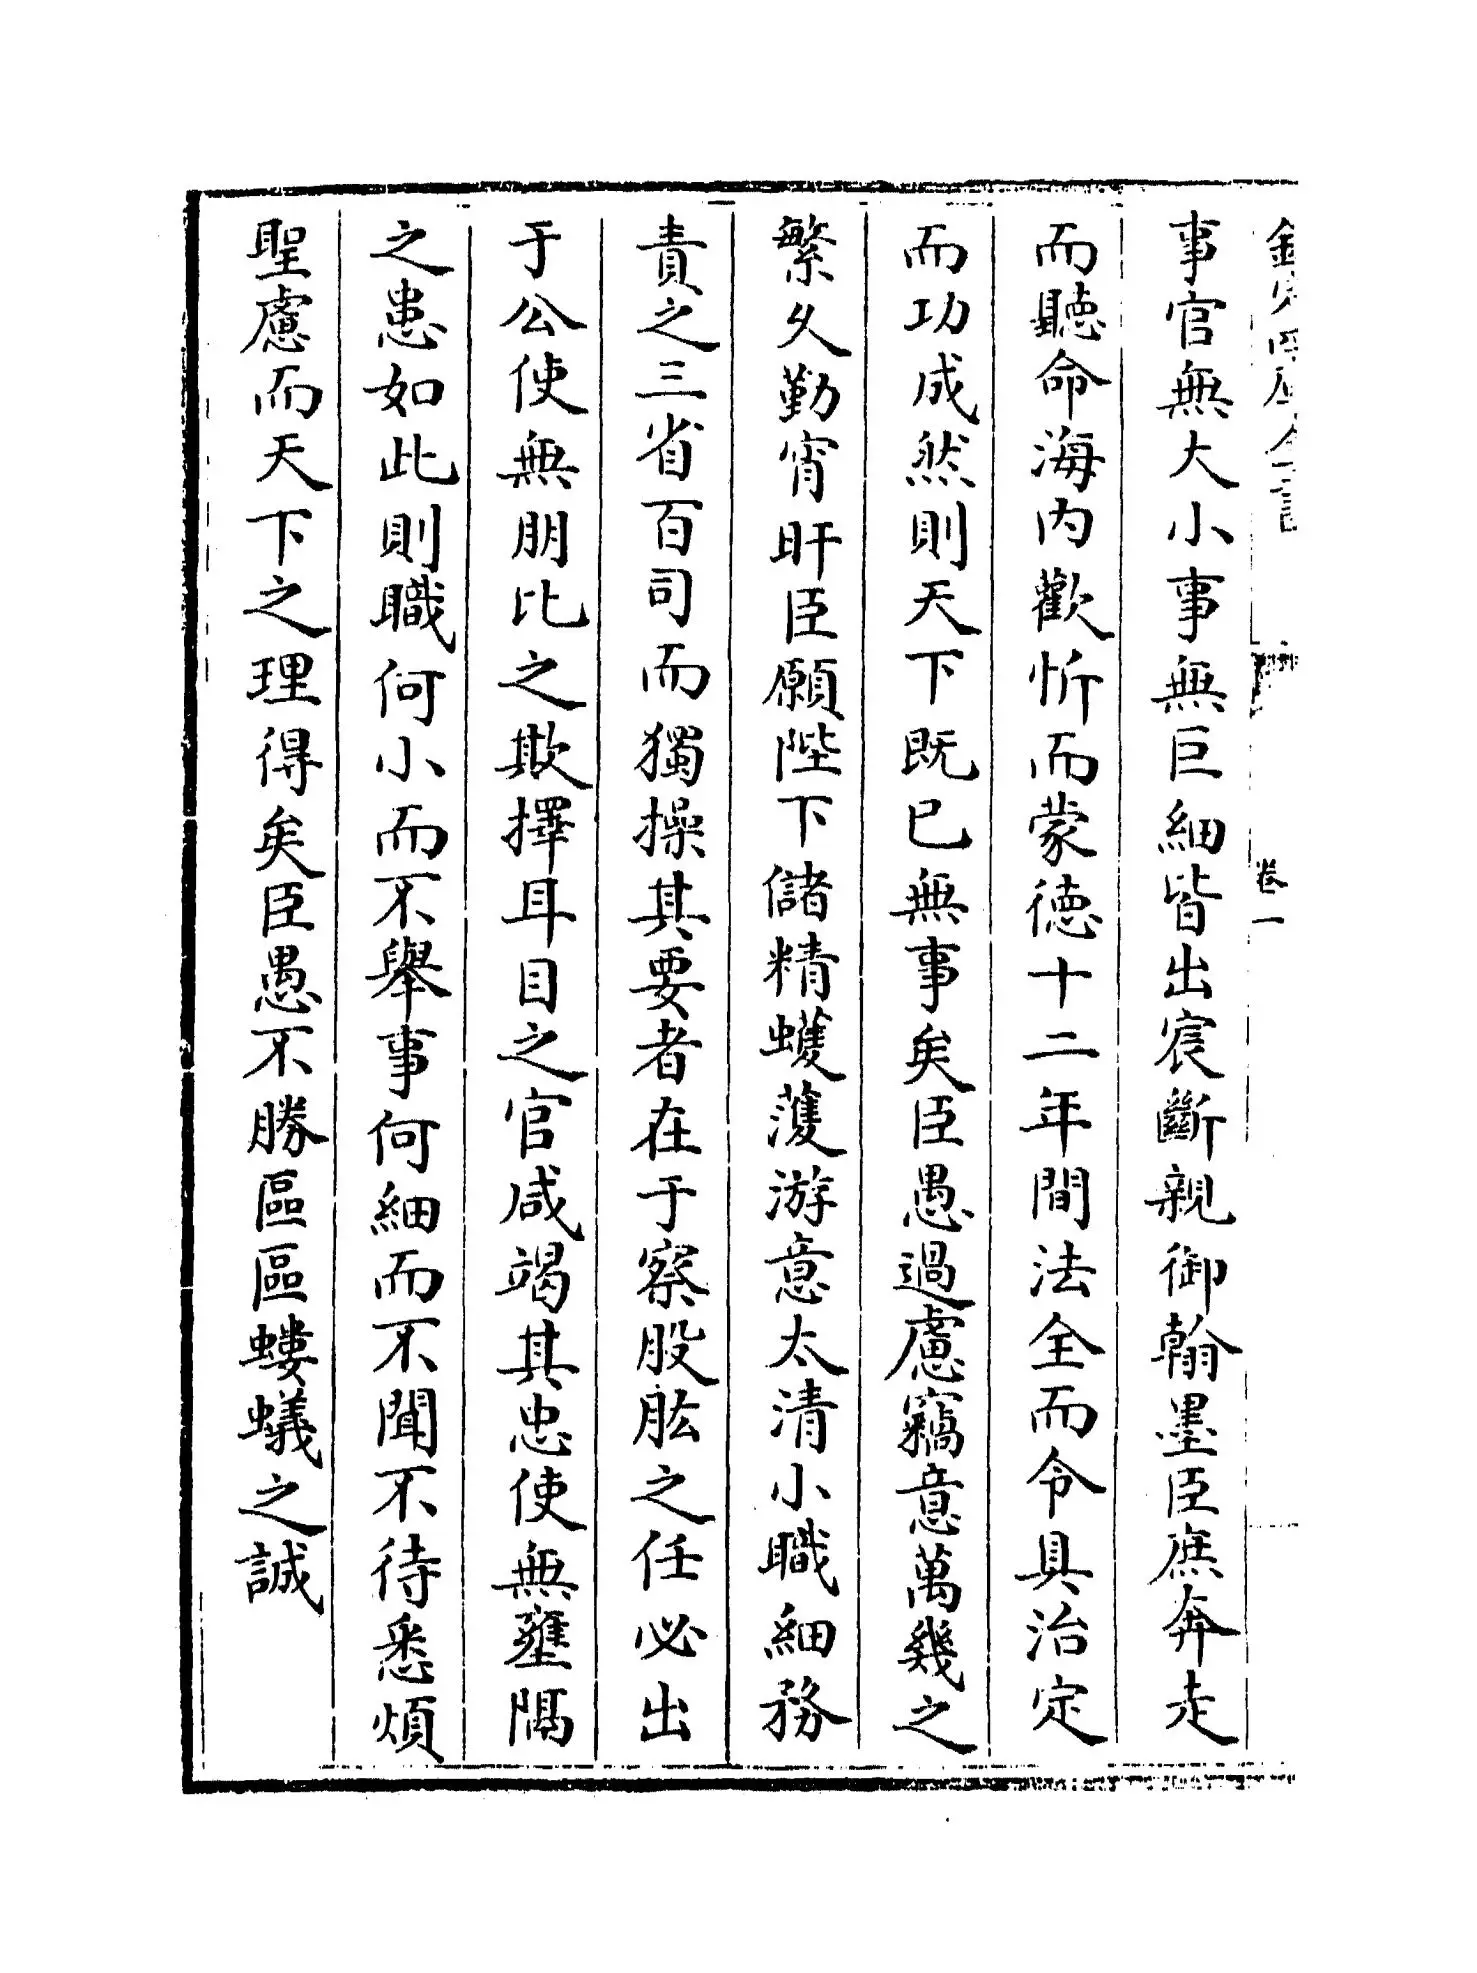 欽定四庫全書
卷一
事官無大小事無巨細皆出宸斷親御翰墨臣庶奔走
而聽命海內歡忻而蒙德十二年間法全而令具治定
而功成然則天下既已無事矣臣愚過慮竊意萬幾之
繁久勤宵旰臣願陛下儲精蠖濩游意太清小職細務
責之三省百司而獨操其要者在于察股肱之任必出
于公使無朋比之欺擇耳目之官咸竭其忠使無壅隔
之患如此則職何小而不舉事何細而不聞不待悉煩
聖慮而天下之理得矣臣愚不勝區區螻蟻之誠